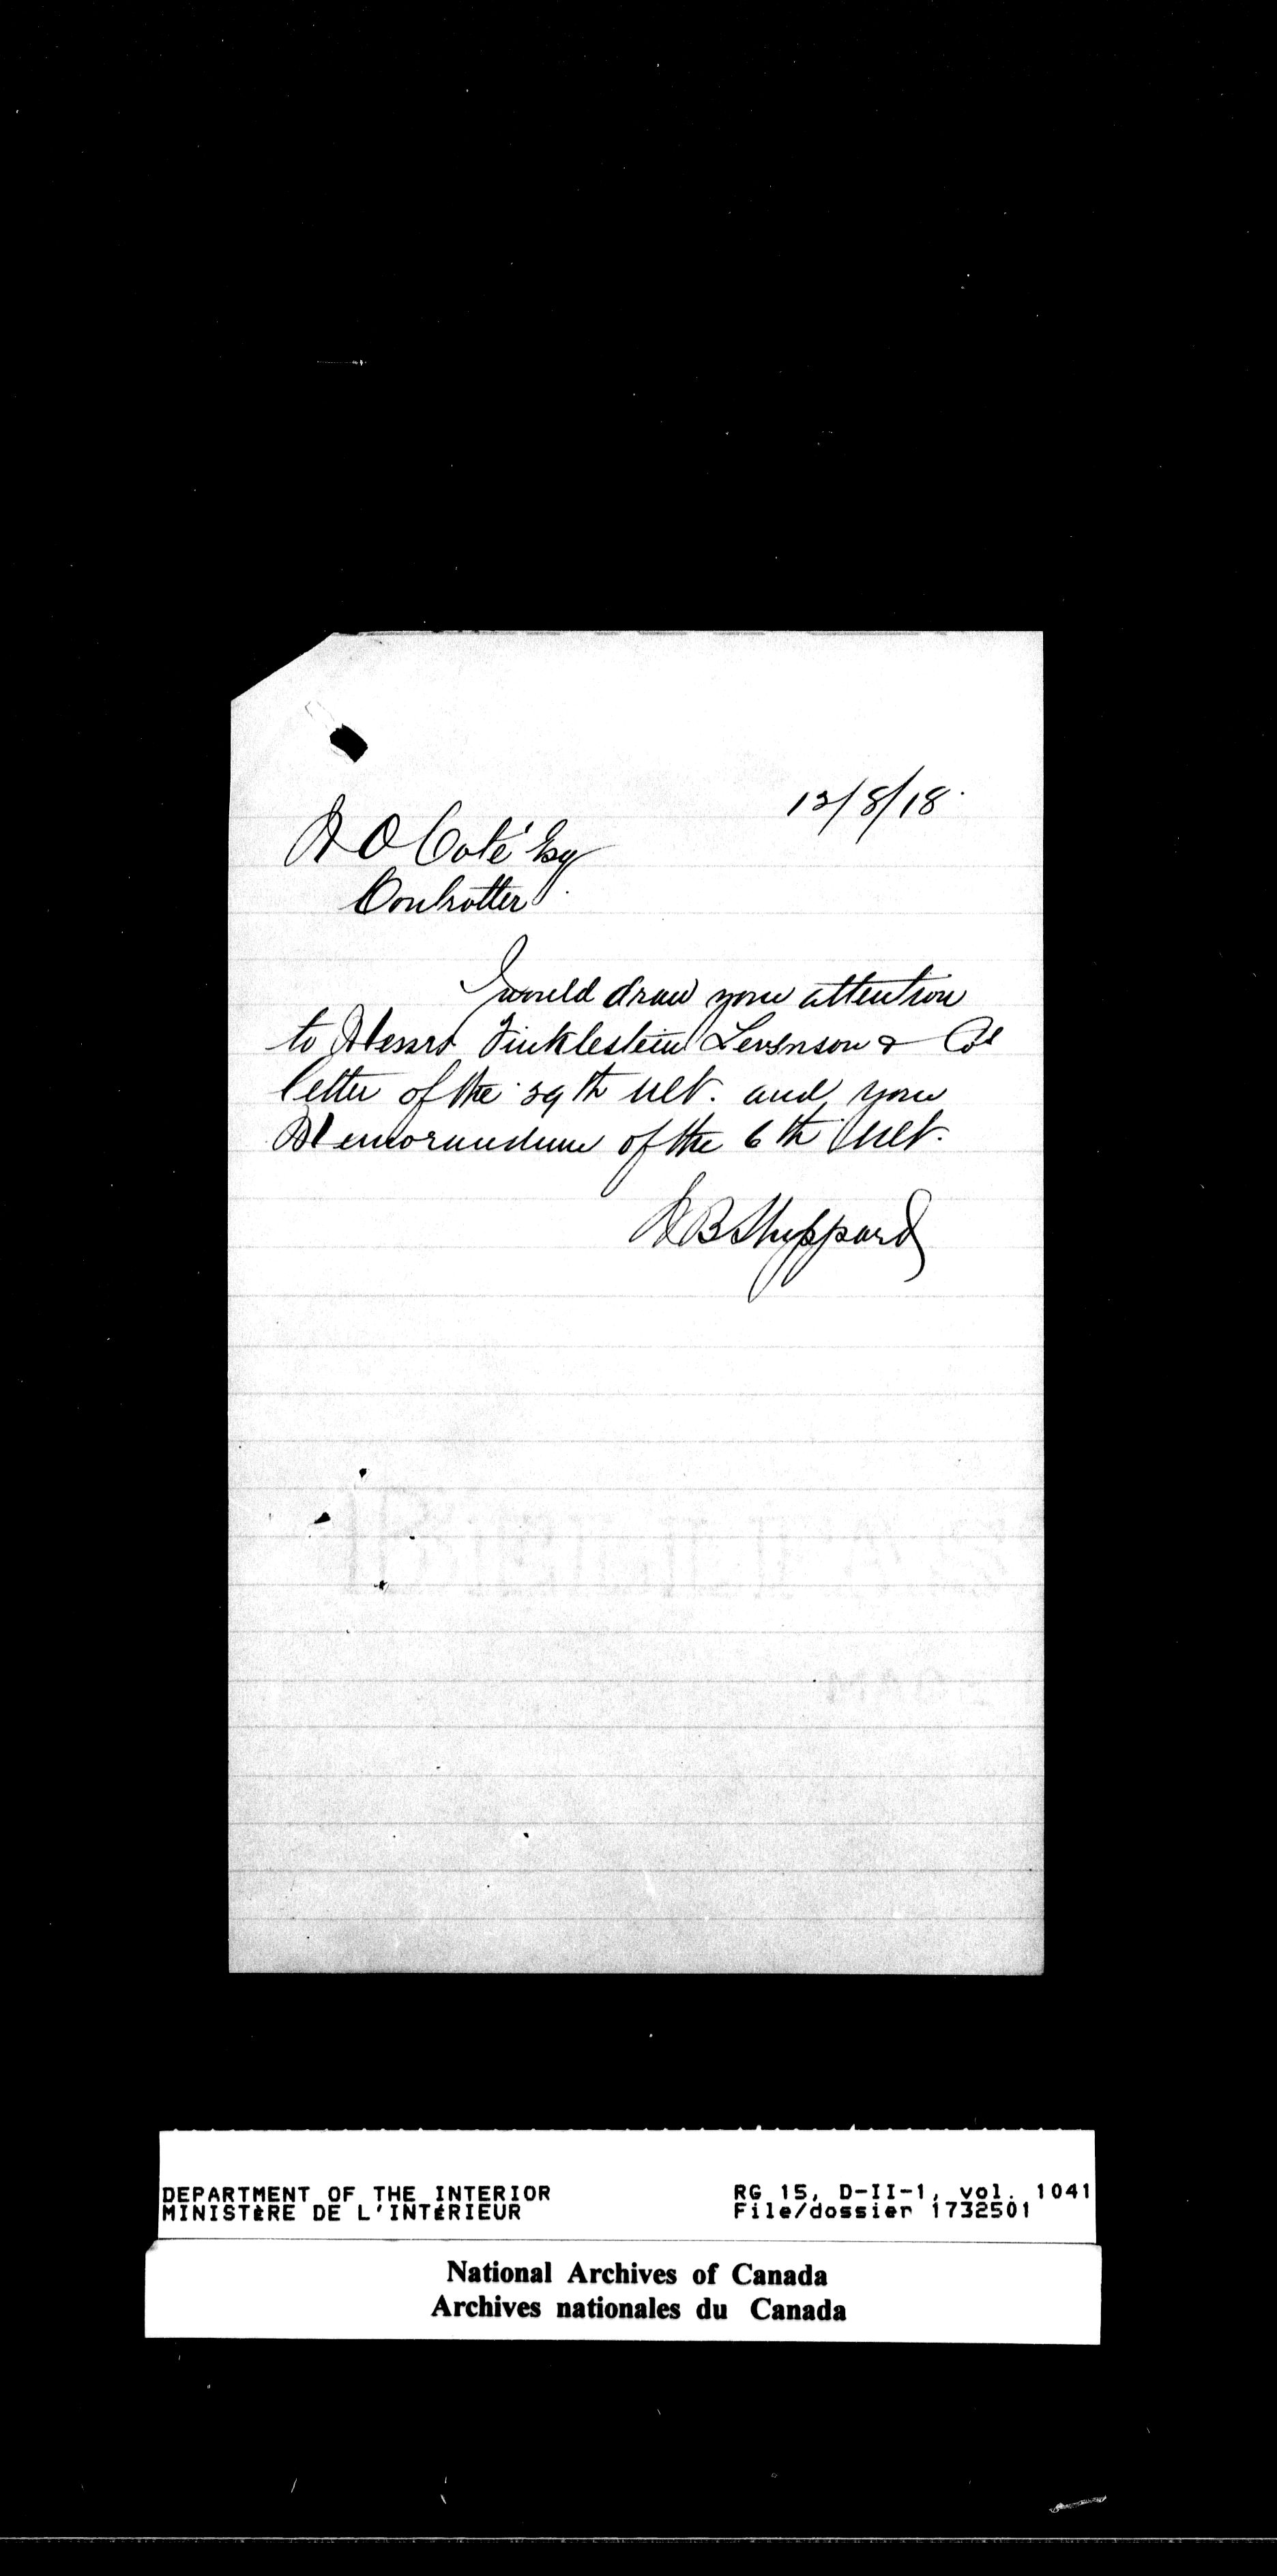 12/8/18.
N O Coté Esq
Controller
I would draw your attention
to Messrs Finklestein Levenson & Cos
letter of the 29th ult. and your
Memorandum of the 6th Ult.
H B Sheppard
DEPARTMENT OF THE INTERIOR
MINISTÈRE DE L'INTÉRIEUR
RG 15, D-II-1, vol. 1041
File/dossier 1732501
National Archives of Canada
Archives nationales du Canada